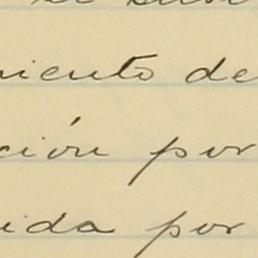 miento de
ción por
ida por